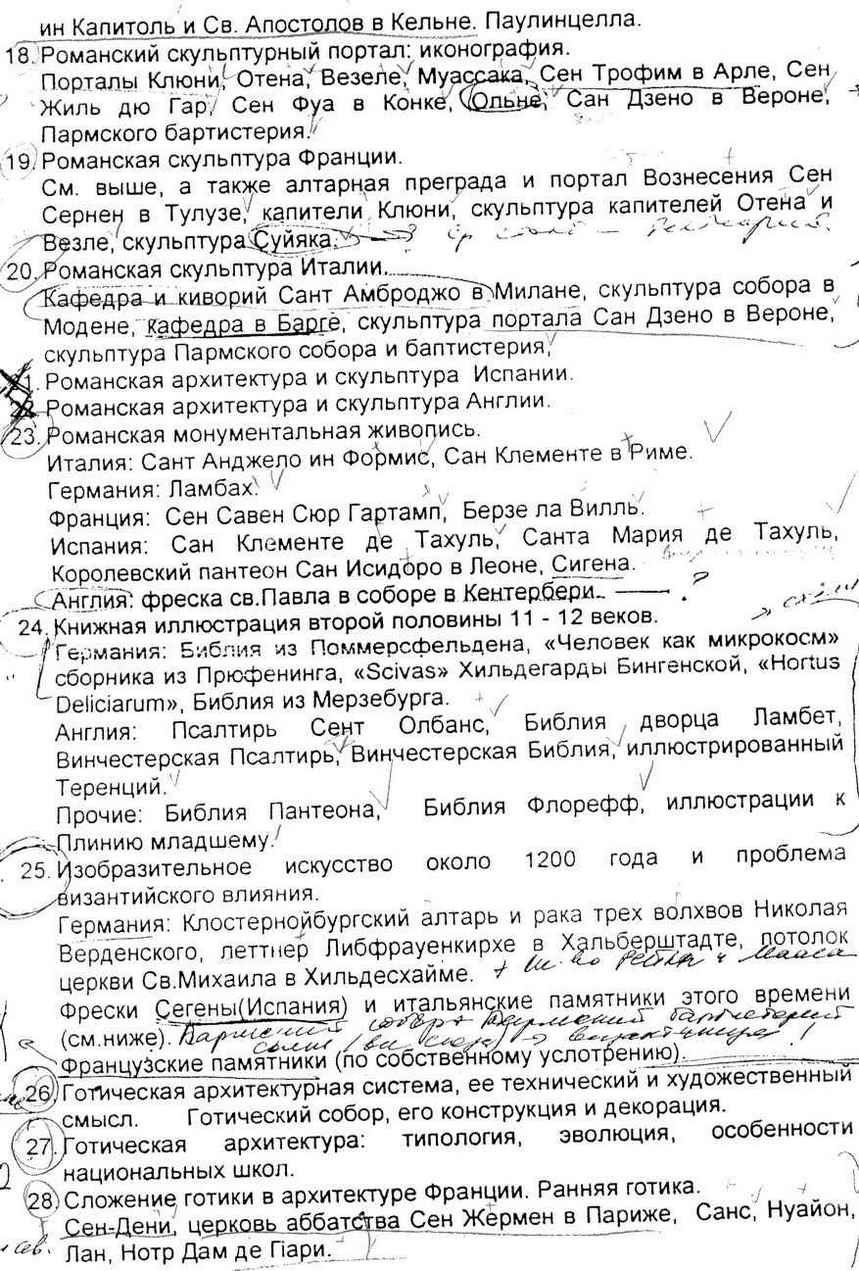 ин Капитоль и Св. Апостолов в Кельне. Паулинцелла.
18. Романский скульптурный портал: иконография.
Порталы Клюни, Отена, Везеле, Муассака, Сен Трофим в Арле, Сен
Жиль дю Гар, Сен Фуа в Конке, Ольне, Сан Дзено в Вероне,
Пармского бартистерия.
19. Романская скульптура Франции.
См. выше, а также алтарная преграда и портал Вознесения Сен
Сернен в Тулузе, капители Клюни, скульптура капителей Отена и
Везле, скульптура Суйяка. ?
20. Романская скульптура Италии.
Кафедра и киворий Сант Амброджо в Милане, скульптура собора в
Модене, кафедра в Барге, скульптура портала Сан Дзено в Вероне,
скульптура Пармского собора и баптистерия,
21. Романская архитектура и скульптура Испании.
22. Романская архитектура и скульптура Англии.
23. Романская монументальная живопись.
Италия: Сант Анджело ин Формис, Сан Клементе в Риме.
Германия: Ламбах.
Франция: Сен Савен Сюр Гартамп, Берзе ла Вилль.
Испания: Сан Клементе де Тахуль, Санта Мария де Тахуль,
Королевский пантеон Сан Исидоро в Леоне, Сигена.
Англия: фреска св.Павла в соборе в Кентербери. — ?
24. Книжная иллюстрация второй половины 11 - 12 веков.
Германия: Библия из Поммерсфельдена, «Человек как микрокосм»
сборника из Прюфенинга, «Scivas» Хильдегарды Бингенской, «Hortus
Deliciarum», Библия из Мерзебурга.
Англия: Псалтирь Сент Олбанс, Библия дворца Ламбет,
Винчестерская Псалтирь, Винчестерская Библия, иллюстрированный
Теренций.
Прочие: Библия Пантеона, Библия Флорефф, иллюстрации к
Плинию младшему.
25. Изобразительное искусство около 1200 года и проблема
византийского влияния.
Германия: Клостернойбургский алтарь и рака трех волхвов Николая
Верденского, леттнер Либфрауенкирхе в Хальберштадте, потолок
церкви Св.Михаила в Хильдесхайме.
Фрески Сегены(Испания) и итальянские памятники этого времени
(см.ниже).
Французские памятники (по собственному услотрению).
26. Готическая архитектурная система, ее технический и художественный
смысл. Готический собор, его конструкция и декорация.
27. Готическая архитектура: типология, эволюция, особенности
национальных школ.
28. Сложение готики в архитектуре Франции. Ранняя готика.
Сен-Дени, церковь аббатства Сен Жермен в Париже, Санс, Нуайон,
Лан, Нотр Дам де Гіари.